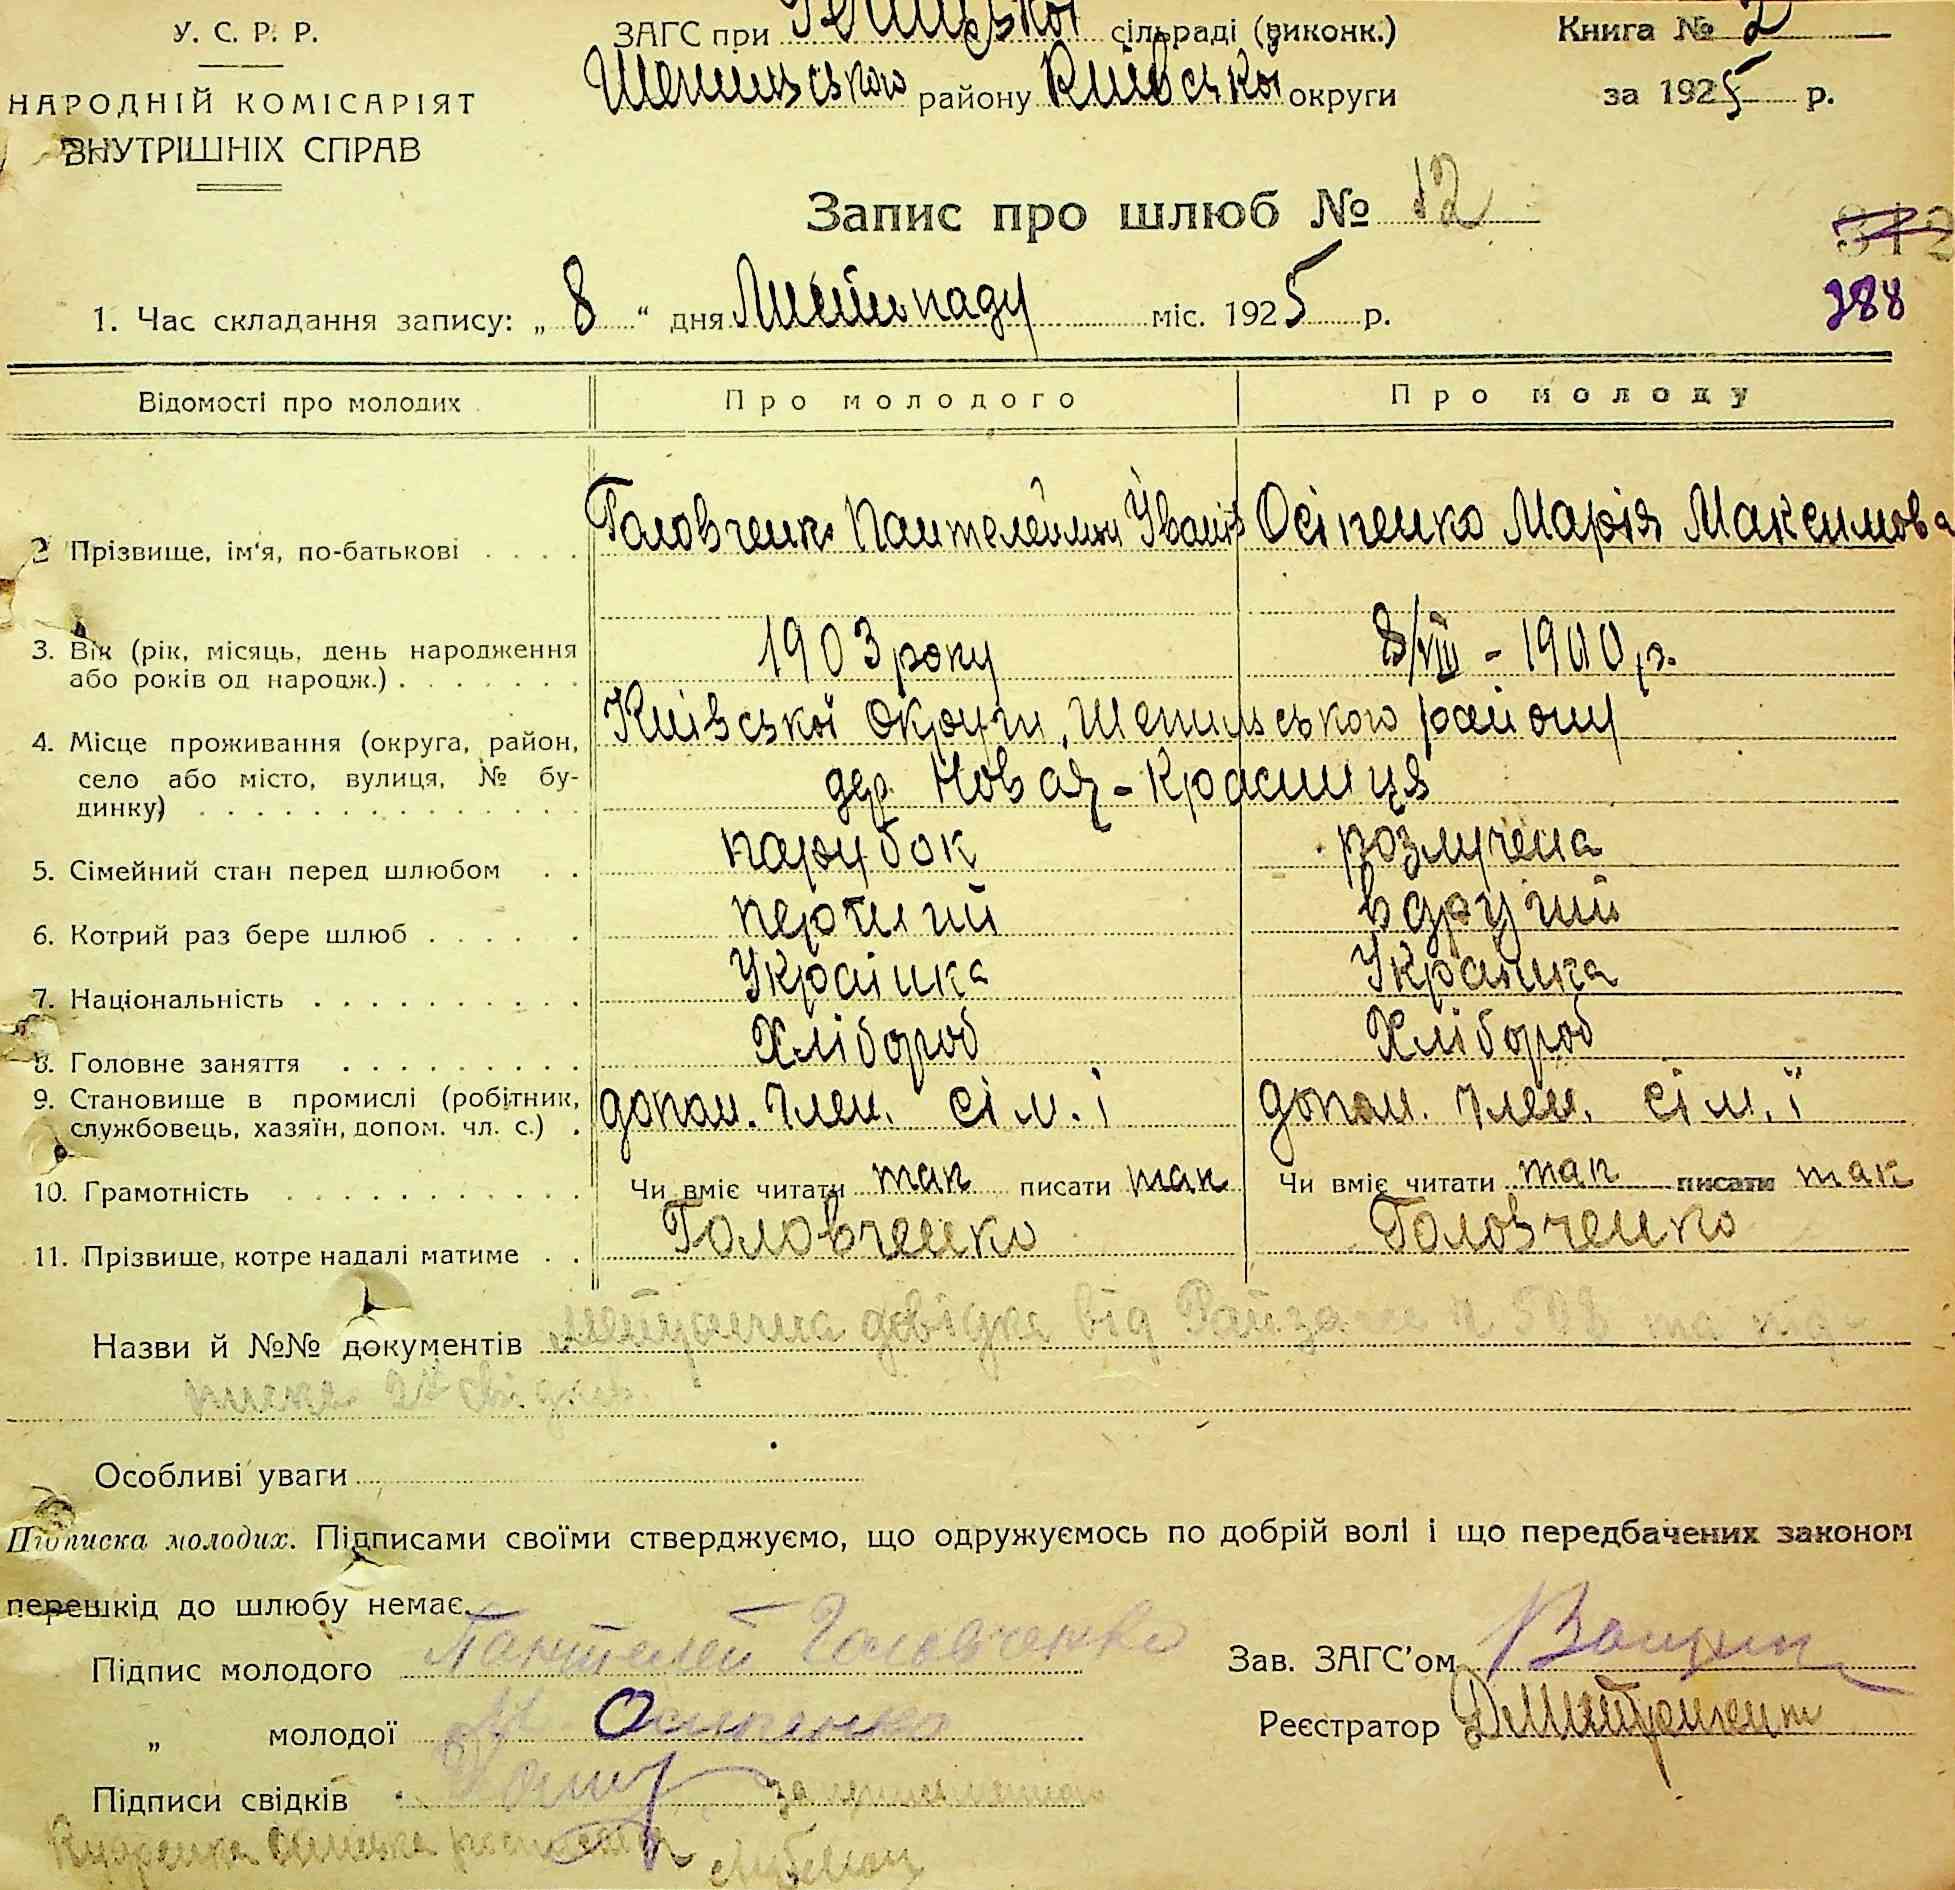 У. С. Р. Р.
НАРОДНІЙ КОМІСАРІЯТ
ВНУТРІШНІХ СПРАВ
ЗАГС при сільраді (виконк.)
району Київської округи
Книга № 2
за 1925 р.
Запис про шлюб № 12
312
288
1. Час складання запису: „ 8 “ дня Листопаду міс. 1925 р.
Відомості про молодих Про молодого Про молоду
2 Прізвище, ім'я, по-батькові . . . . Головченко Пантелеймон Іванів Осіпенко Марія Максимова
3. Вік (рік, місяць, день народження
або років од народж.) . . . . . . . 1903 року 8/VIII - 1900 р.
4. Місце проживання (округа, район,
село або місто, вулиця, № бу-
динку) . . . . . . . . . . . . . . .
Київської Округи, району
дер. Новая-Красниця
5. Сімейний стан перед шлюбом . . парубок розлучена
6. Котрий раз бере шлюб . . . . . перший вдругий
7. Національність . . . . . . . . . . Українка Українка
8. Головне заняття . . . . . . . . . Хлібороб Хлібороб
9. Становище в промислі (робітник,
службовець, хазяїн, допом. чл. с.) . допом. член. сім.і допом. член. сім.ї
10. Грамотність . . . . . . . . . . . Чи вміє читати так писати так Чи вміє читати так писати так
11. Прізвище, котре надалі матиме . . Головченко Головченко
Назви й №№ документів довідка від № 508 та під-
писка 2х свідків.
Особливі уваги
Підписка молодих. Підписами своїми стверджуємо, що одружуємось по добрій волі і що передбачених законом
перешкід до шлюбу немає.
Підпис молодого Пантелей Головченко
„ молодої М Осипенко
Підписи свідків
Зав. ЗАГС'ом
Реєстратор